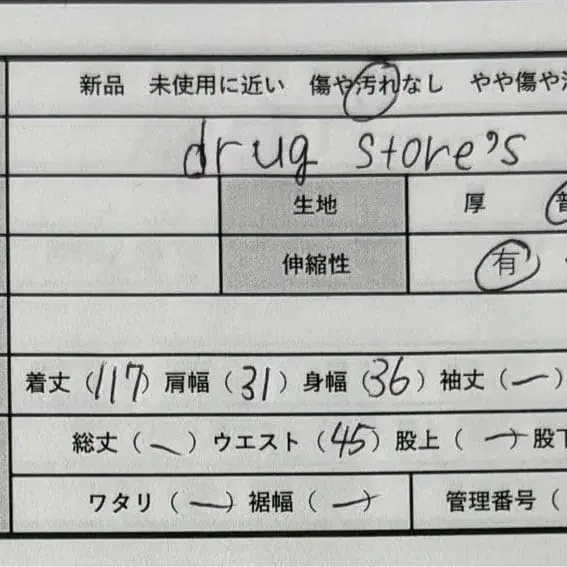 新品 未使用に近い 傷や汚れなし やや傷や
drug store's
生地 厚
伸縮性 有
着丈(117) 肩幅(31) 身幅(36) 袖丈(ー)
総丈(ー) ウエスト(45) 股上(ー) 股下
ワタリ(ー) 裾幅(ー) 管理番号(